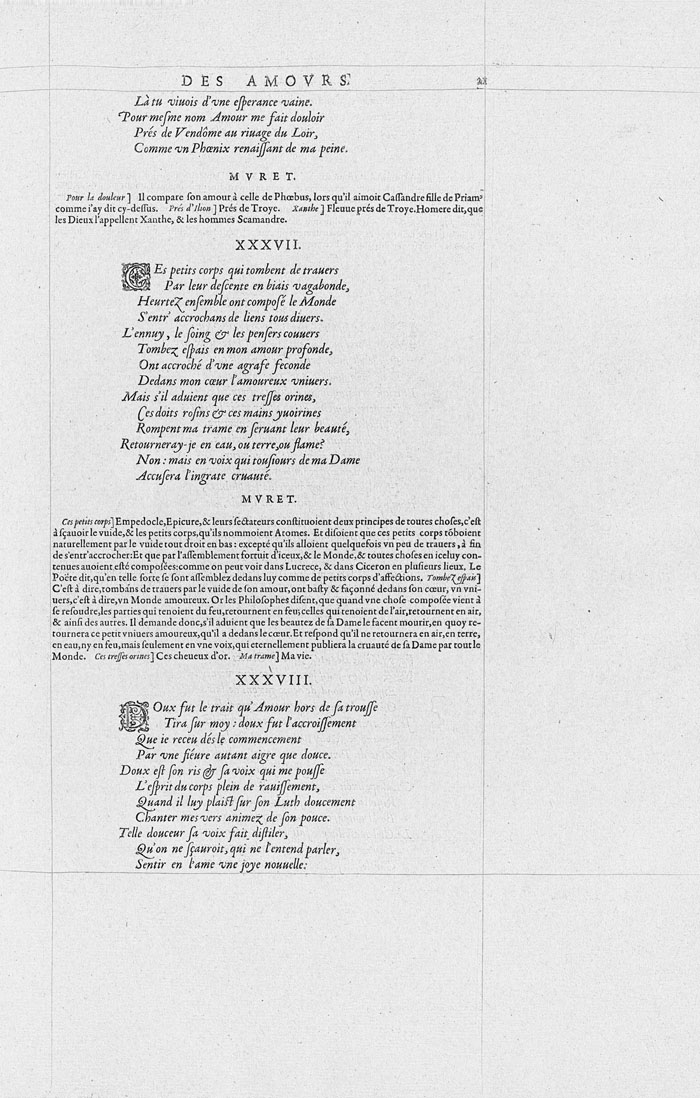 DES AMOVRS.
Là tu viuois d'vne eſperance vaine.
Pour meſme nom Amour me fait douloir
Prés de Vendôme au riuage du Loir,
Comme vn Phœnix renaiſſant de ma peine.
MVRET.
Pour la douleur] Il compare ſon amour à celle de Phœbus, lors qu'il aimoit Caſſandre fille de Priam,
comme i'ay dit cy-deſſus. Prés d'Ilion] Prés de Troye. Xanthe] Fleuue prés de Troye. Homere dit, que
les Dieux l'appellent Xanthe, & les hommes Scamandre.
XXXVII.
CEs petits corps qui tombent de trauers
Par leur deſcente en biais vagabonde,
Heurtez enſemble ont compoſé le Monde
S'entr' accrochans de liens tous diuers.
L'ennuy, le ſoing & les penſers couuers
Tombez eſpais en mon amour profonde,
Ont accroché d'vne agrafe feconde
Dedans mon cœur l'amoureux vniuers.
Mais s'il aduient que ces treſſes orines,
Ces doits roſins & ces mains yuoirines
Rompent ma trame en ſeruant leur beauté,
Retourneray-je en eau, ou terre, ou flame?
Non: mais en voix qui touſiours de ma Dame
Accuſera l'ingrate cruauté.
MVRET.
Ces petits corps] Empedocle, Epicure, & leurs ſectateurs conſtituoient deux principes de toutes choſes, c'eſt
à ſçauoir le vuide, & les petits corps, qu'ils nommoient Atomes. Et diſoient que ces petits corps tõboient
naturellement par le vuide tout droit en bas: excepté qu'ils alloient quelquefois vn peu de trauers, à fin
de s'entr'accrocher: Et que par l'aſſemblement fortuit d'iceux, & le Monde, & toutes choſes en iceluy con-
tenues auoient eſté compoſées: comme on peut voir dans Lucrece, & dans Ciceron en pluſieurs lieux. Le
Poëte dit, qu'en telle ſorte ſe ſont aſſemblez dedans luy comme de petits corps d'affections. Tombez eſpais]
C'eſt à dire, tombãns de trauers par le vuide de ſon amour, ont baſty & façonné dedans ſon cœur, vn vni-
uers, c'eſt à dire, vn Monde amoureux. Or les Philoſophes diſent, que quand vne choſe compoſée vient à
ſe reſoudre, les parties qui tenoient du feu, retournent en feu; celles qui tenoient de l'air, retournent en air,
& ainſi des autres. Il demande donc, s'il aduient que les beautez de ſa Dame le facent mourir, en quoy re-
tournera ce petit vniuers amoureux, qu'il a dedans le cœur. Et reſpond qu'il ne retournera en air, en terre,
en eau, ny en feu, mais ſeulement en vne voix, qui eternellement publiera la cruauté de ſa Dame par tout le
Monde. Ces treſſes orines] Ces cheueux d'or. Ma trame] Ma vie.
XXXVIII.
DOux fut le trait qu'Amour hors de ſa trouſſe
Tira ſur moy: doux fut l'accroiſſement
Que ie receu dés le commencement
Par vne fiéure autant aigre que douce.
Doux eſt ſon ris & ſa voix qui me pouſſe
L'eſprit du corps plein de rauiſſement,
Quand il luy plaiſt ſur ſon Luth doucement
Chanter mes vers animez de ſon pouce.
Telle douceur ſa voix fait diſtiler,
Qu'on ne ſçauroit, qui ne l'entend parler,
Sentir en l'ame vne joye nouuelle: